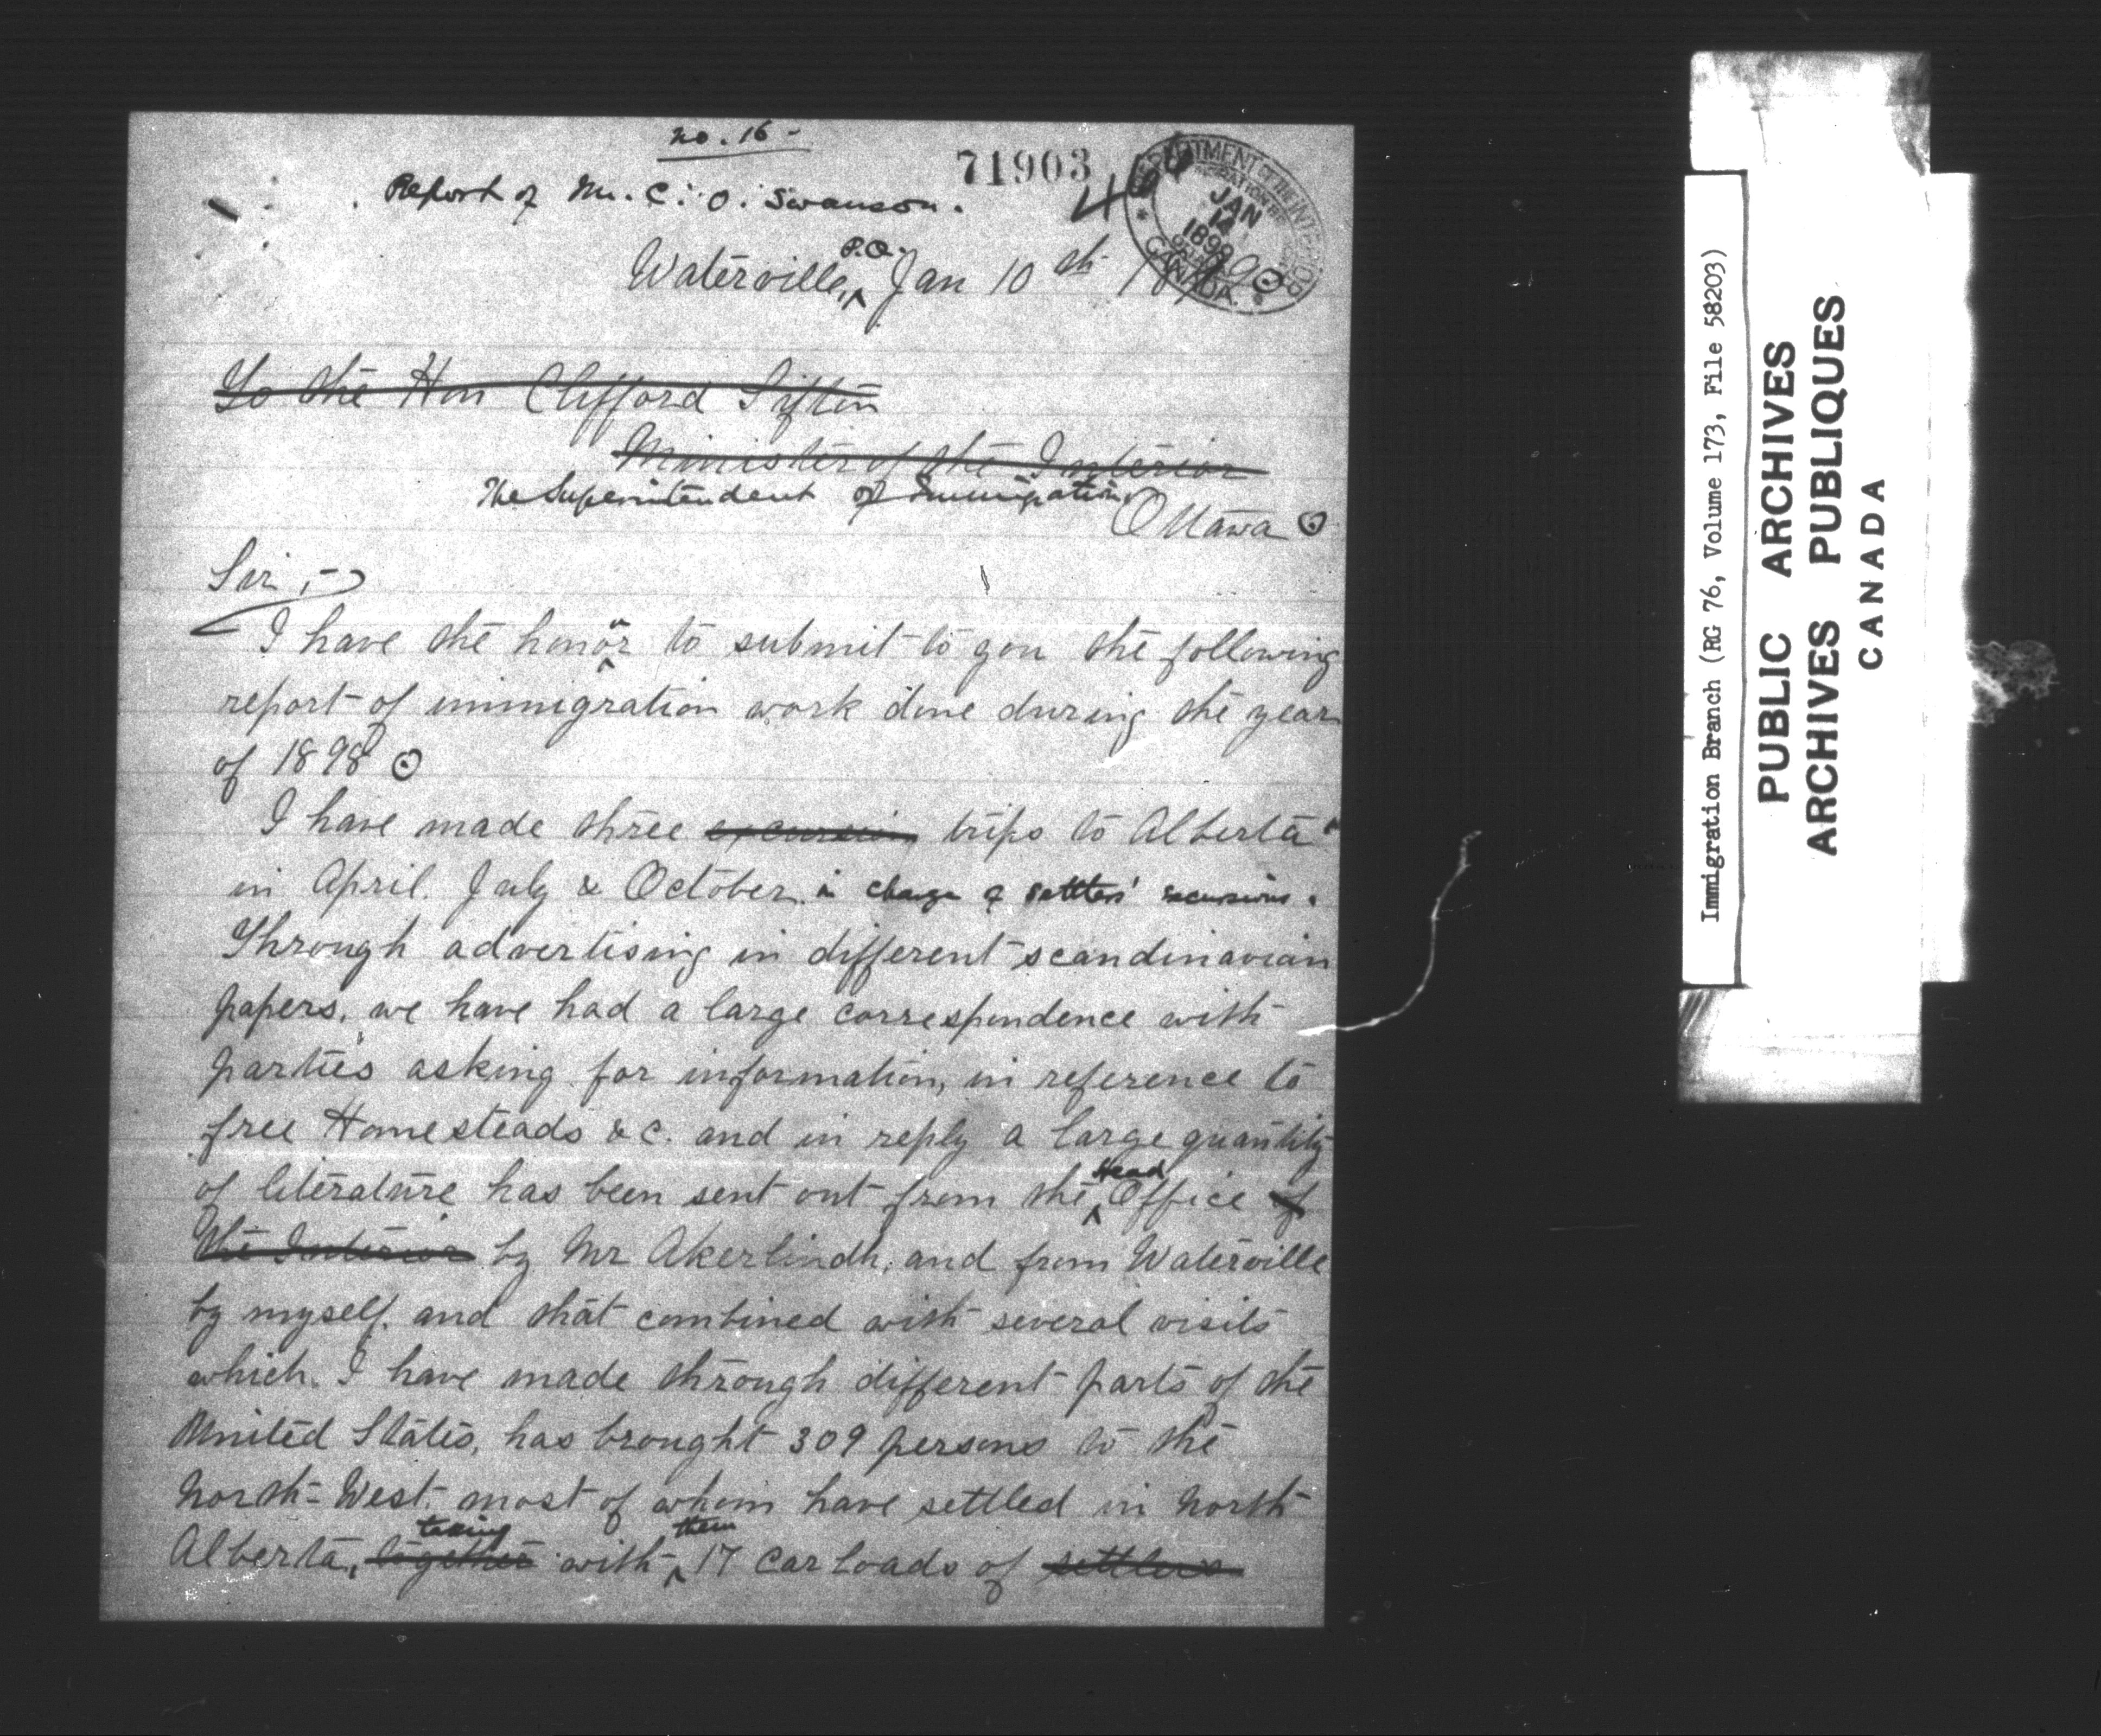 no. 16 -
71903
Report of Mr. C. O. Swanson.
DEPARTMENT OF THE INTERIOR
JAN
14
1899
CANADA.
P.Q.
Waterville, Jan 10th
To the Hon Clifford Sifton
Minister of the Interior
The Superintendent of Immigration,
Ottawa
Sir,-
I have the honour to submit to you the following
report of immigration work done during the year
of 1898
I have made three excursion trips to Alberta
in April. July & October in charge of settlers' excursions.
Through advertising in different scandinavian
papers, we have had a large correspondence with
parties asking for information, in reference to
free Homesteads &c. and in reply a large quantity
Head
of literature has been sent out from the Office of
the Interior by Mr Akerlindh, and from Waterville
by myself. and that combined with several visits
which I have made through different parts of the
United States, has brought 309 persons to the
North-West. most of whom have settled in North
taking them
Alberta, together with 17 car loads of settlers
Immigration Branch (RG 76, Volume 173, File 58203)
PUBLIC ARCHIVES
ARCHIVES PUBLIQUES
CANADA